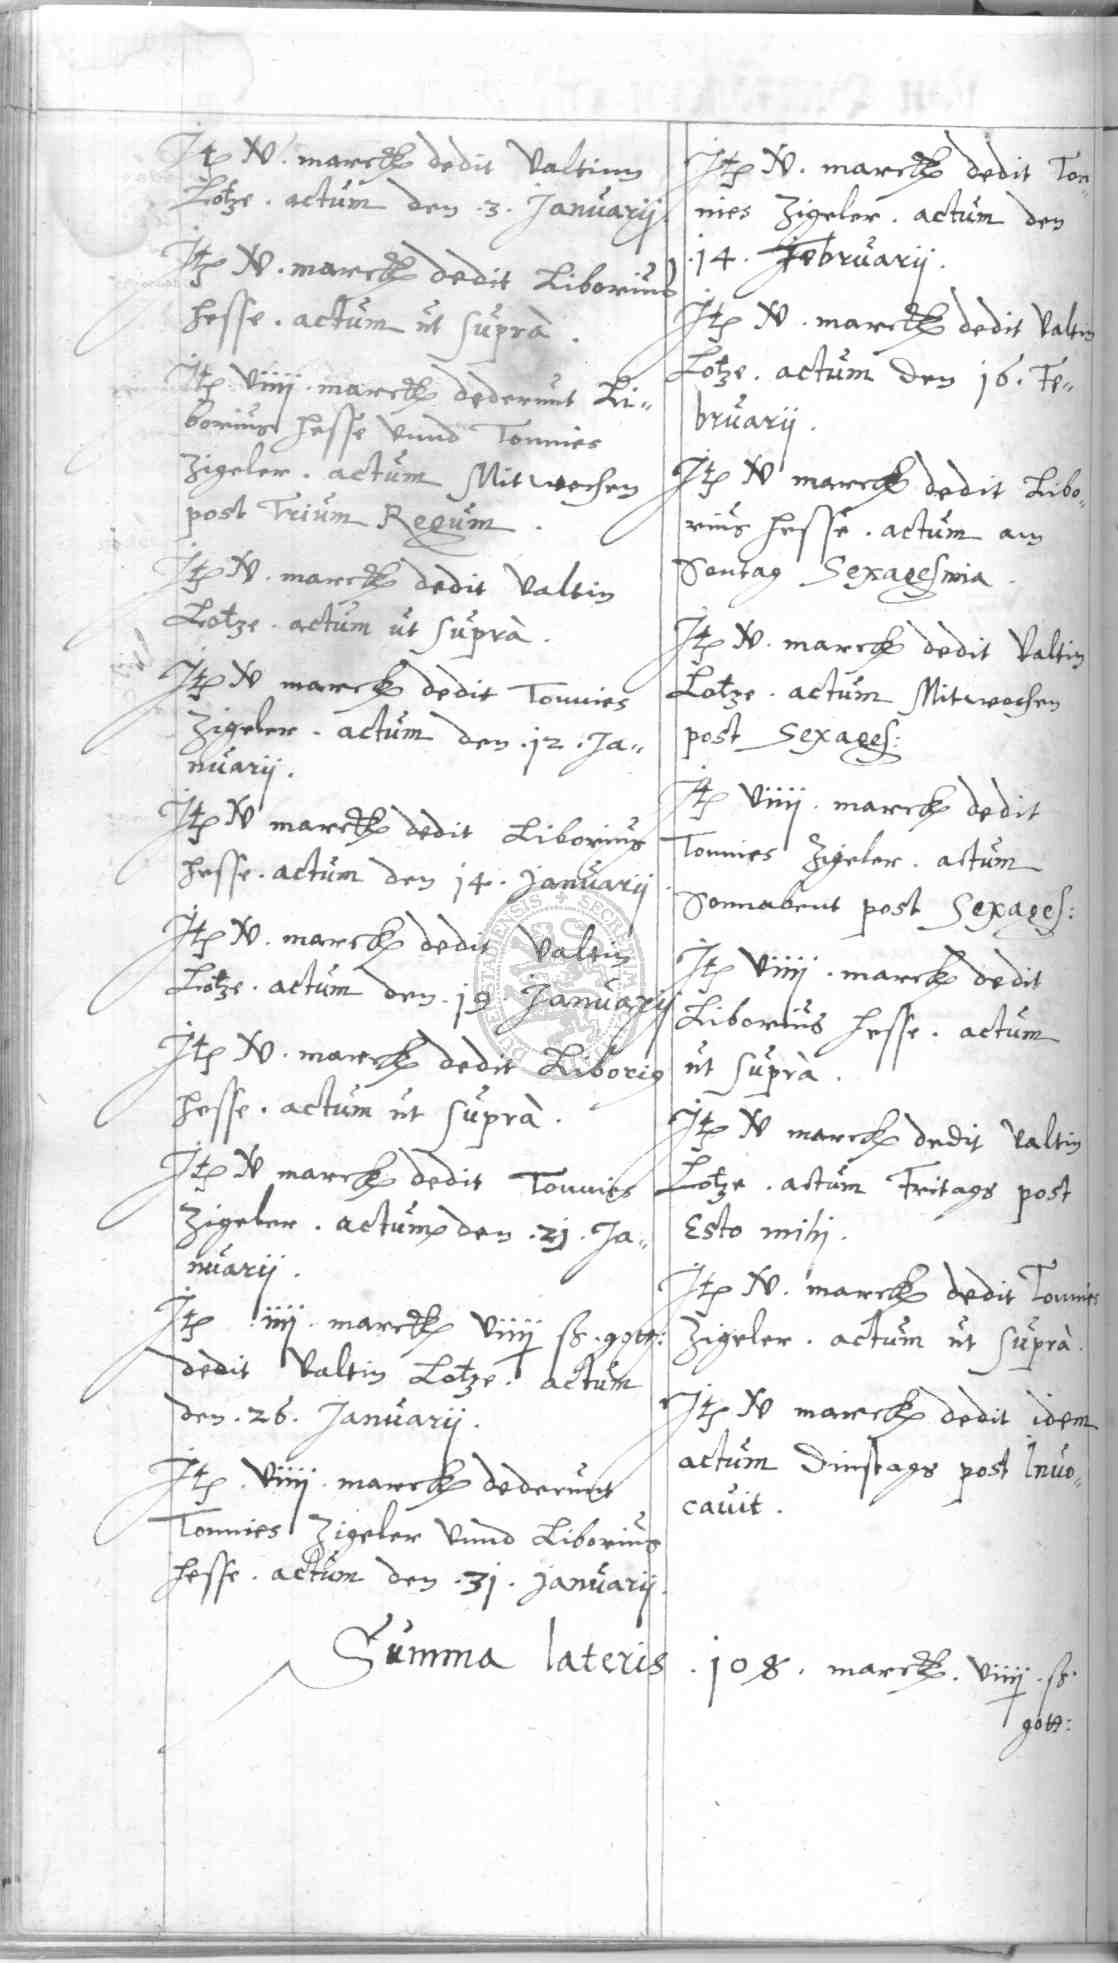 Itē v̸. marck dedit Valtinn
Lotze. actum den .3. Januarij
Itē v̸. marck dedit Liborius
Hesse. actum ut supra.
Itē viiij. marck dederunt Li=
borius Hesse vnnd Tonnies
Zigeler. actum Mitwochen
post Trium Regum.
Itē v̸. marck dedit Valtin
Lotze. actum ut supra.
Itē v̸ marck dedit Tonnies
Zigeler. actum den .12. Ja=
nuarij.
Itē v̸ marck dedit Liborius
Hesse. actum den 14. Januarij
Itē v̸. marck dedit Valtin
Lotze. actum den .19. Januarij
Itē v̸. marck dedit Liborig
Hesse. actum ut supra.
Itē v̸ marck dedit Tonnies
Zigeler. actum den .21. Ja=
nuarij.
Itē iiij. marck viiij ß. gott:
dedit Valtin Lotze. actum
den .26. Januarij.
Itē. viiij. marck dederunt
Tonnies Zigeler vnnd Liborius
Hesse. actum den .31. Januarij.
Itē v̸. marck dedit Ton=
nies Zigeler. actum den
.14. Februarij.
Itē v̸. marck dedit Valtin
Lotze. actum den 16. Fe=
bruarij.
Itē v̸ marck dedit Libo=
rius Hesse. actum am
Sontag Sexagesima.
Itē v̸. marck dedit Valtin
Lotze. actum Mitwochen
post Sexages:
Itē viiij. marck dedit
Tonnies Zigeler. actum
Sonnabent post Sexages:
Itē viiij. marck dedit
Liborius Hesse. actum
ut supra.
Itē v̸ marck dedit Valtin
Lotze. actum Fritags post
Esto mihi.
Itē v̸. marck dedit Tonnies
Zigeler. actum ut supra.
Itē v̸ marck dedit idem
actum Dinstags post Inuo=
cauit.
Summa lateris .108. marck. viiij. ß.
gott: